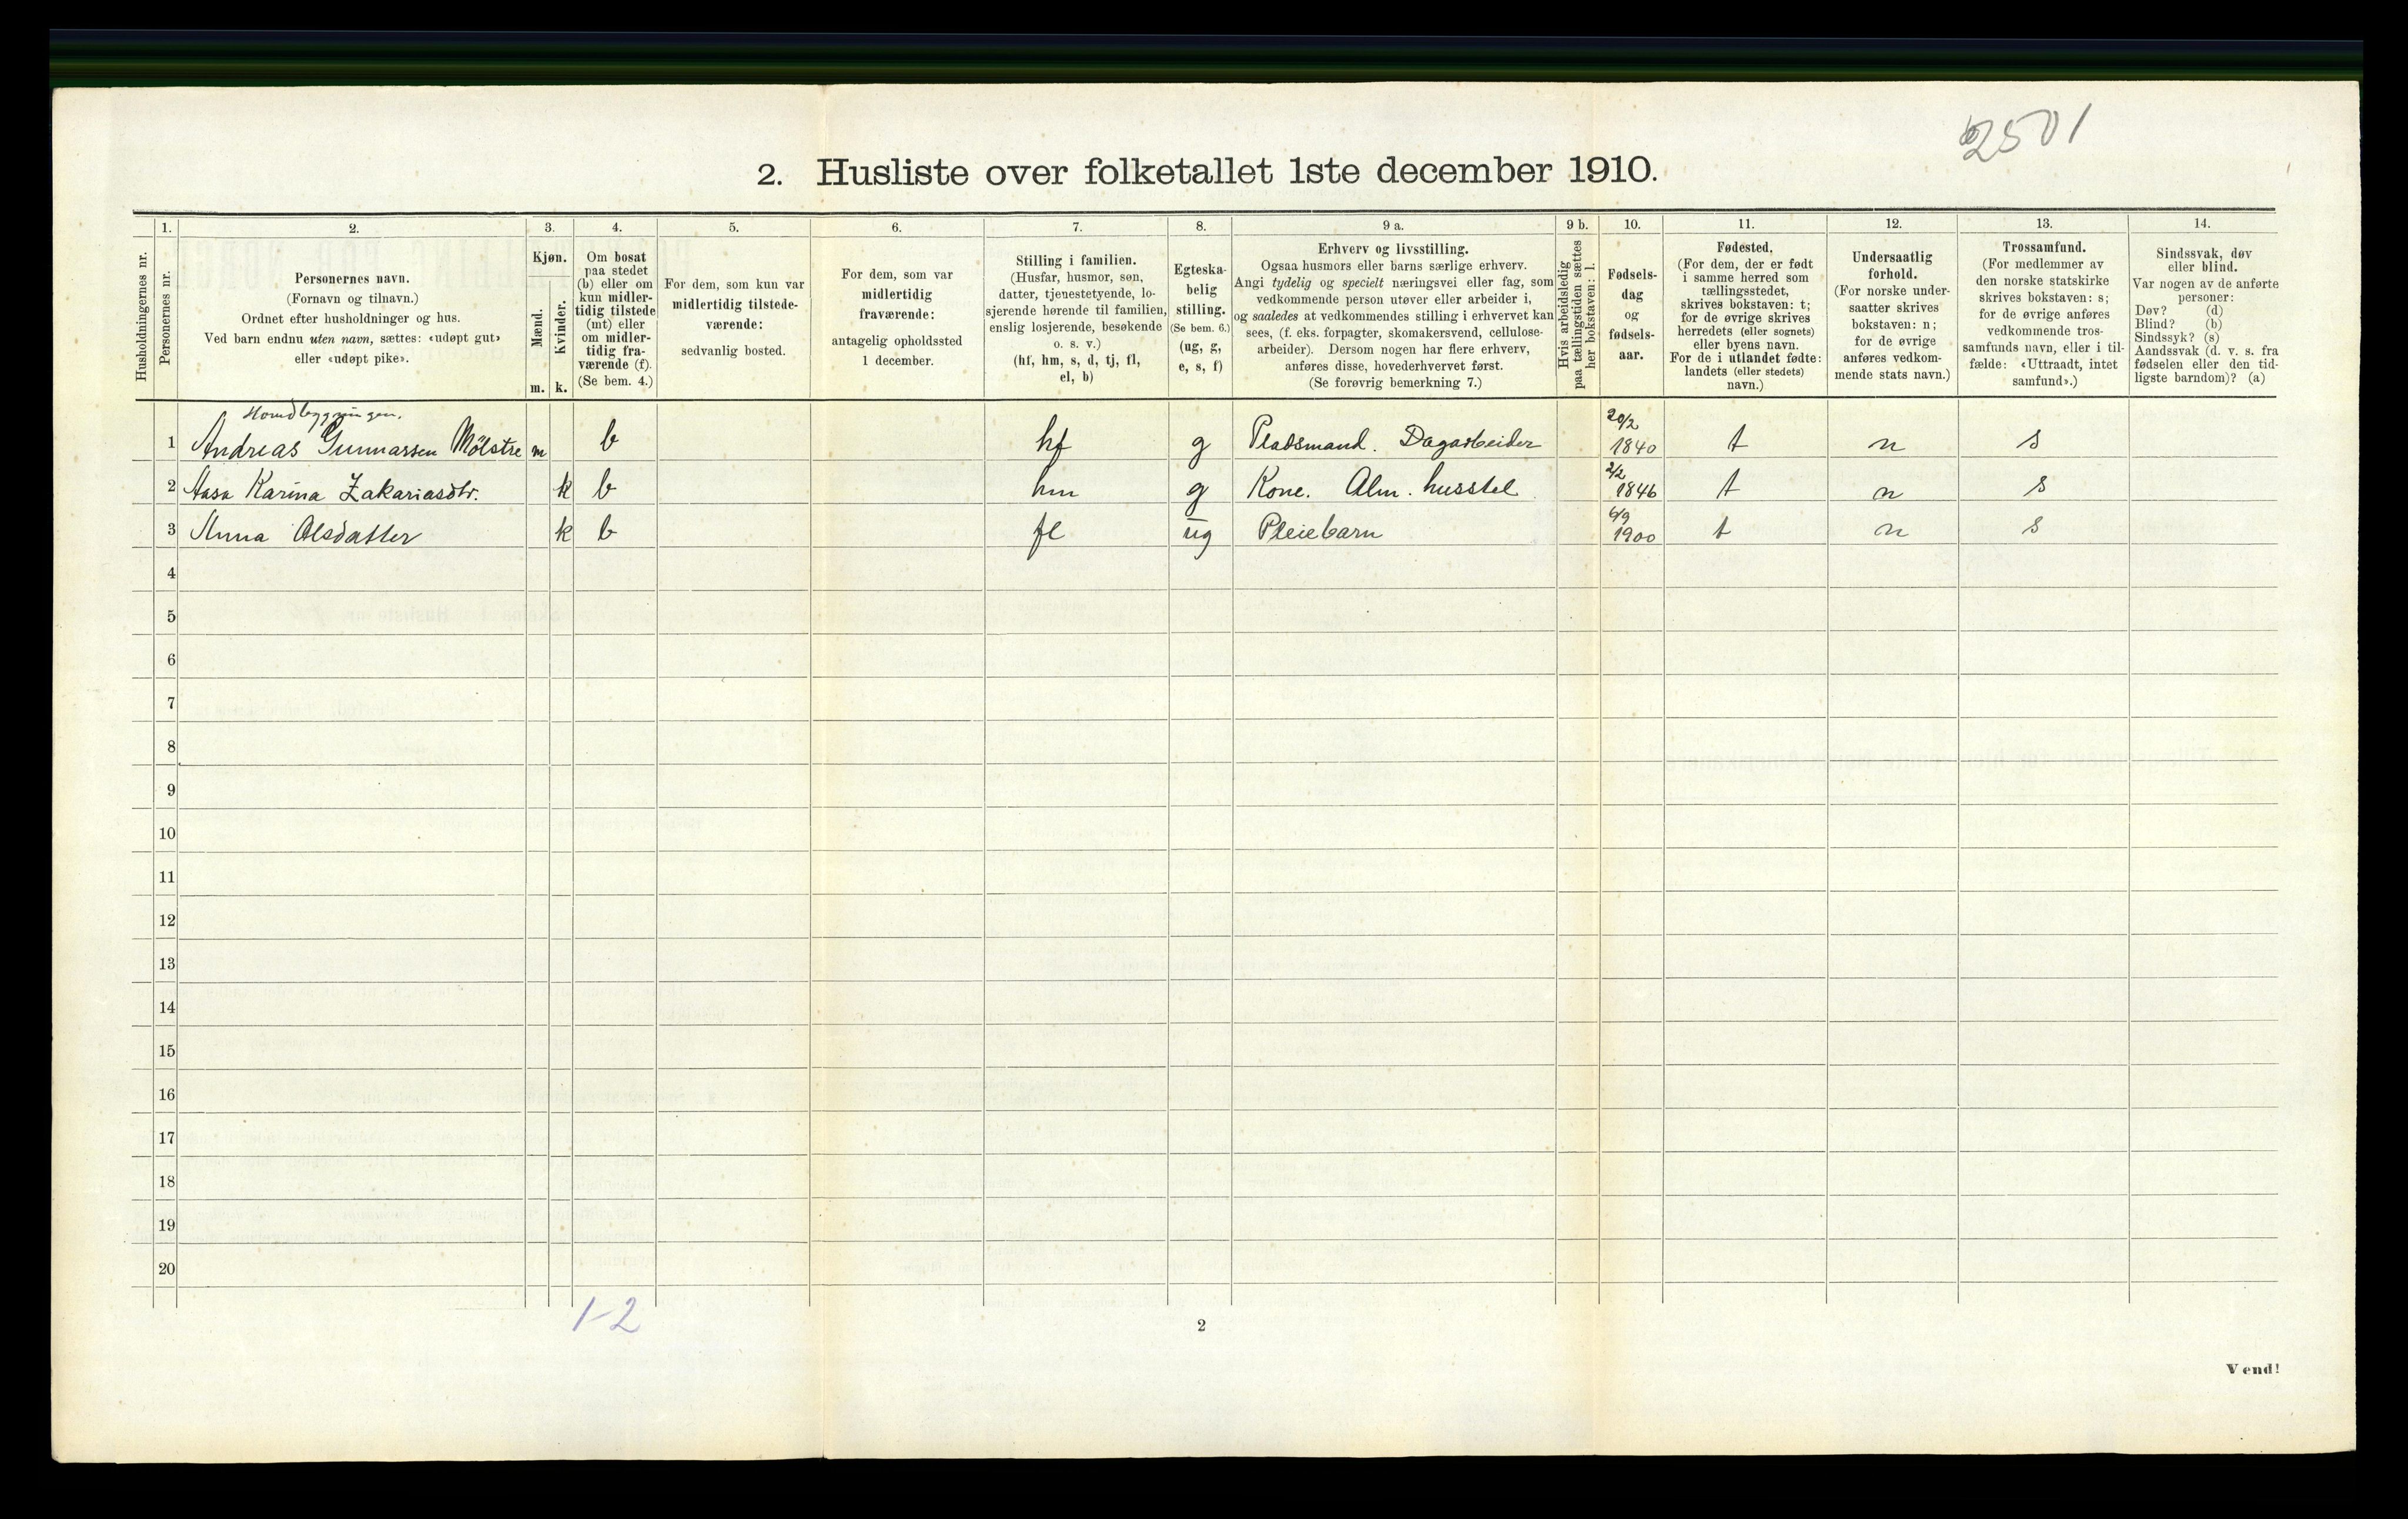 2501
2. Husliste over folketallet 1ste december 1910.
Husholdningernes nr.
1.
Personernes nr.
2.
Personernes navn.
(Fornavn og tilnavn.)
Ordnet efter husholdninger og hus.
Ved barn endnu uten navn, sættes: «udøpt gut»
eller «udøpt pike».
3.
Kjøn.
Mænd.
m.
Kvinder.
k.
4.
Om bosat
paa stedet
(b) eller om
kun midler-
tidig tilstede
(mt) eller
om midler-
tidig fra-
værende (f).
(Se bem. 4.)
5.
For dem, som kun var
midlertidig tilstede-
værende:
sedvanlig bosted.
6.
For dem, som var
midlertidig
fraværende:
antagelig opholdssted
1 december.
7.
Stilling i familien.
(Husfar, husmor, søn,
datter, tjenestetyende, lo-
sjerende hørende til familien,
enslig losjerende, besøkende
o. s. v.)
(hf, hm, s, d, tj, fl,
el, b)
8.
Egteska-
belig
stilling.
(Se bem. 6.)
(ug, g,
e, s, f)
9 a.
Erhverv og livsstilling.
Ogsaa husmors eller barns særlige erhverv.
Angi tydelig og specielt næringsvei eller fag, som
vedkommende person utøver eller arbeider i,
og saaledes at vedkommendes stilling i erhvervet kan
sees, (f. eks. forpagter, skomakersvend, cellulose-
arbeider). Dersom nogen har flere erhverv,
anføres disse, hovederhvervet først.
(Se forøvrig bemerkning 7.)
9 b.
Hvis arbeidsledig
paa tællingstiden sættes
her bokstaven: l.
10.
Fødsels-
dag
og
fødsels-
aar.
11.
Fødested.
(For dem, der er født
i samme herred som
tællingsstedet,
skrives bokstaven: t;
for de øvrige skrives
herredets (eller sognets)
eller byens navn.
For de i utlandet fødte:
landets (eller stedets)
navn.)
12.
Undersaatlig
forhold.
(For norske under-
saatter skrives
bokstaven: n;
for de øvrige
anføres vedkom-
mende stats navn.)
13.
Trossamfund.
(For medlemmer av
den norske statskirke
skrives bokstaven: s;
for de øvrige anføres
vedkommende tros-
samfunds navn, eller i til-
fælde: «Uttraadt, intet
samfund».)
14.
Sindssvak, døv
eller blind.
Var nogen av de anførte
personer:
Døv? (d)
Blind? (b)
Sindssyk? (s)
Aandssvak (d. v. s. fra
fødselen eller den tid-
ligste barndom)? (a)
Hovedbygningen.
1 Andreas Gunnarsen Mölstre m b hf g Pladsmand. Dagarbeider 20/2 1840 t n s
2 Aasa Karina Zakariasdtr. k b hm g Kone. Alm. husstel 2/2 1846 t n s
3 Anna Olsdatter k b fl ug Pleiebarn 6/9 1900 t n s
4
5
6
7
8
9
10
11
12
13
14
15
16
17
18
19
20
1-2
2
Vend!